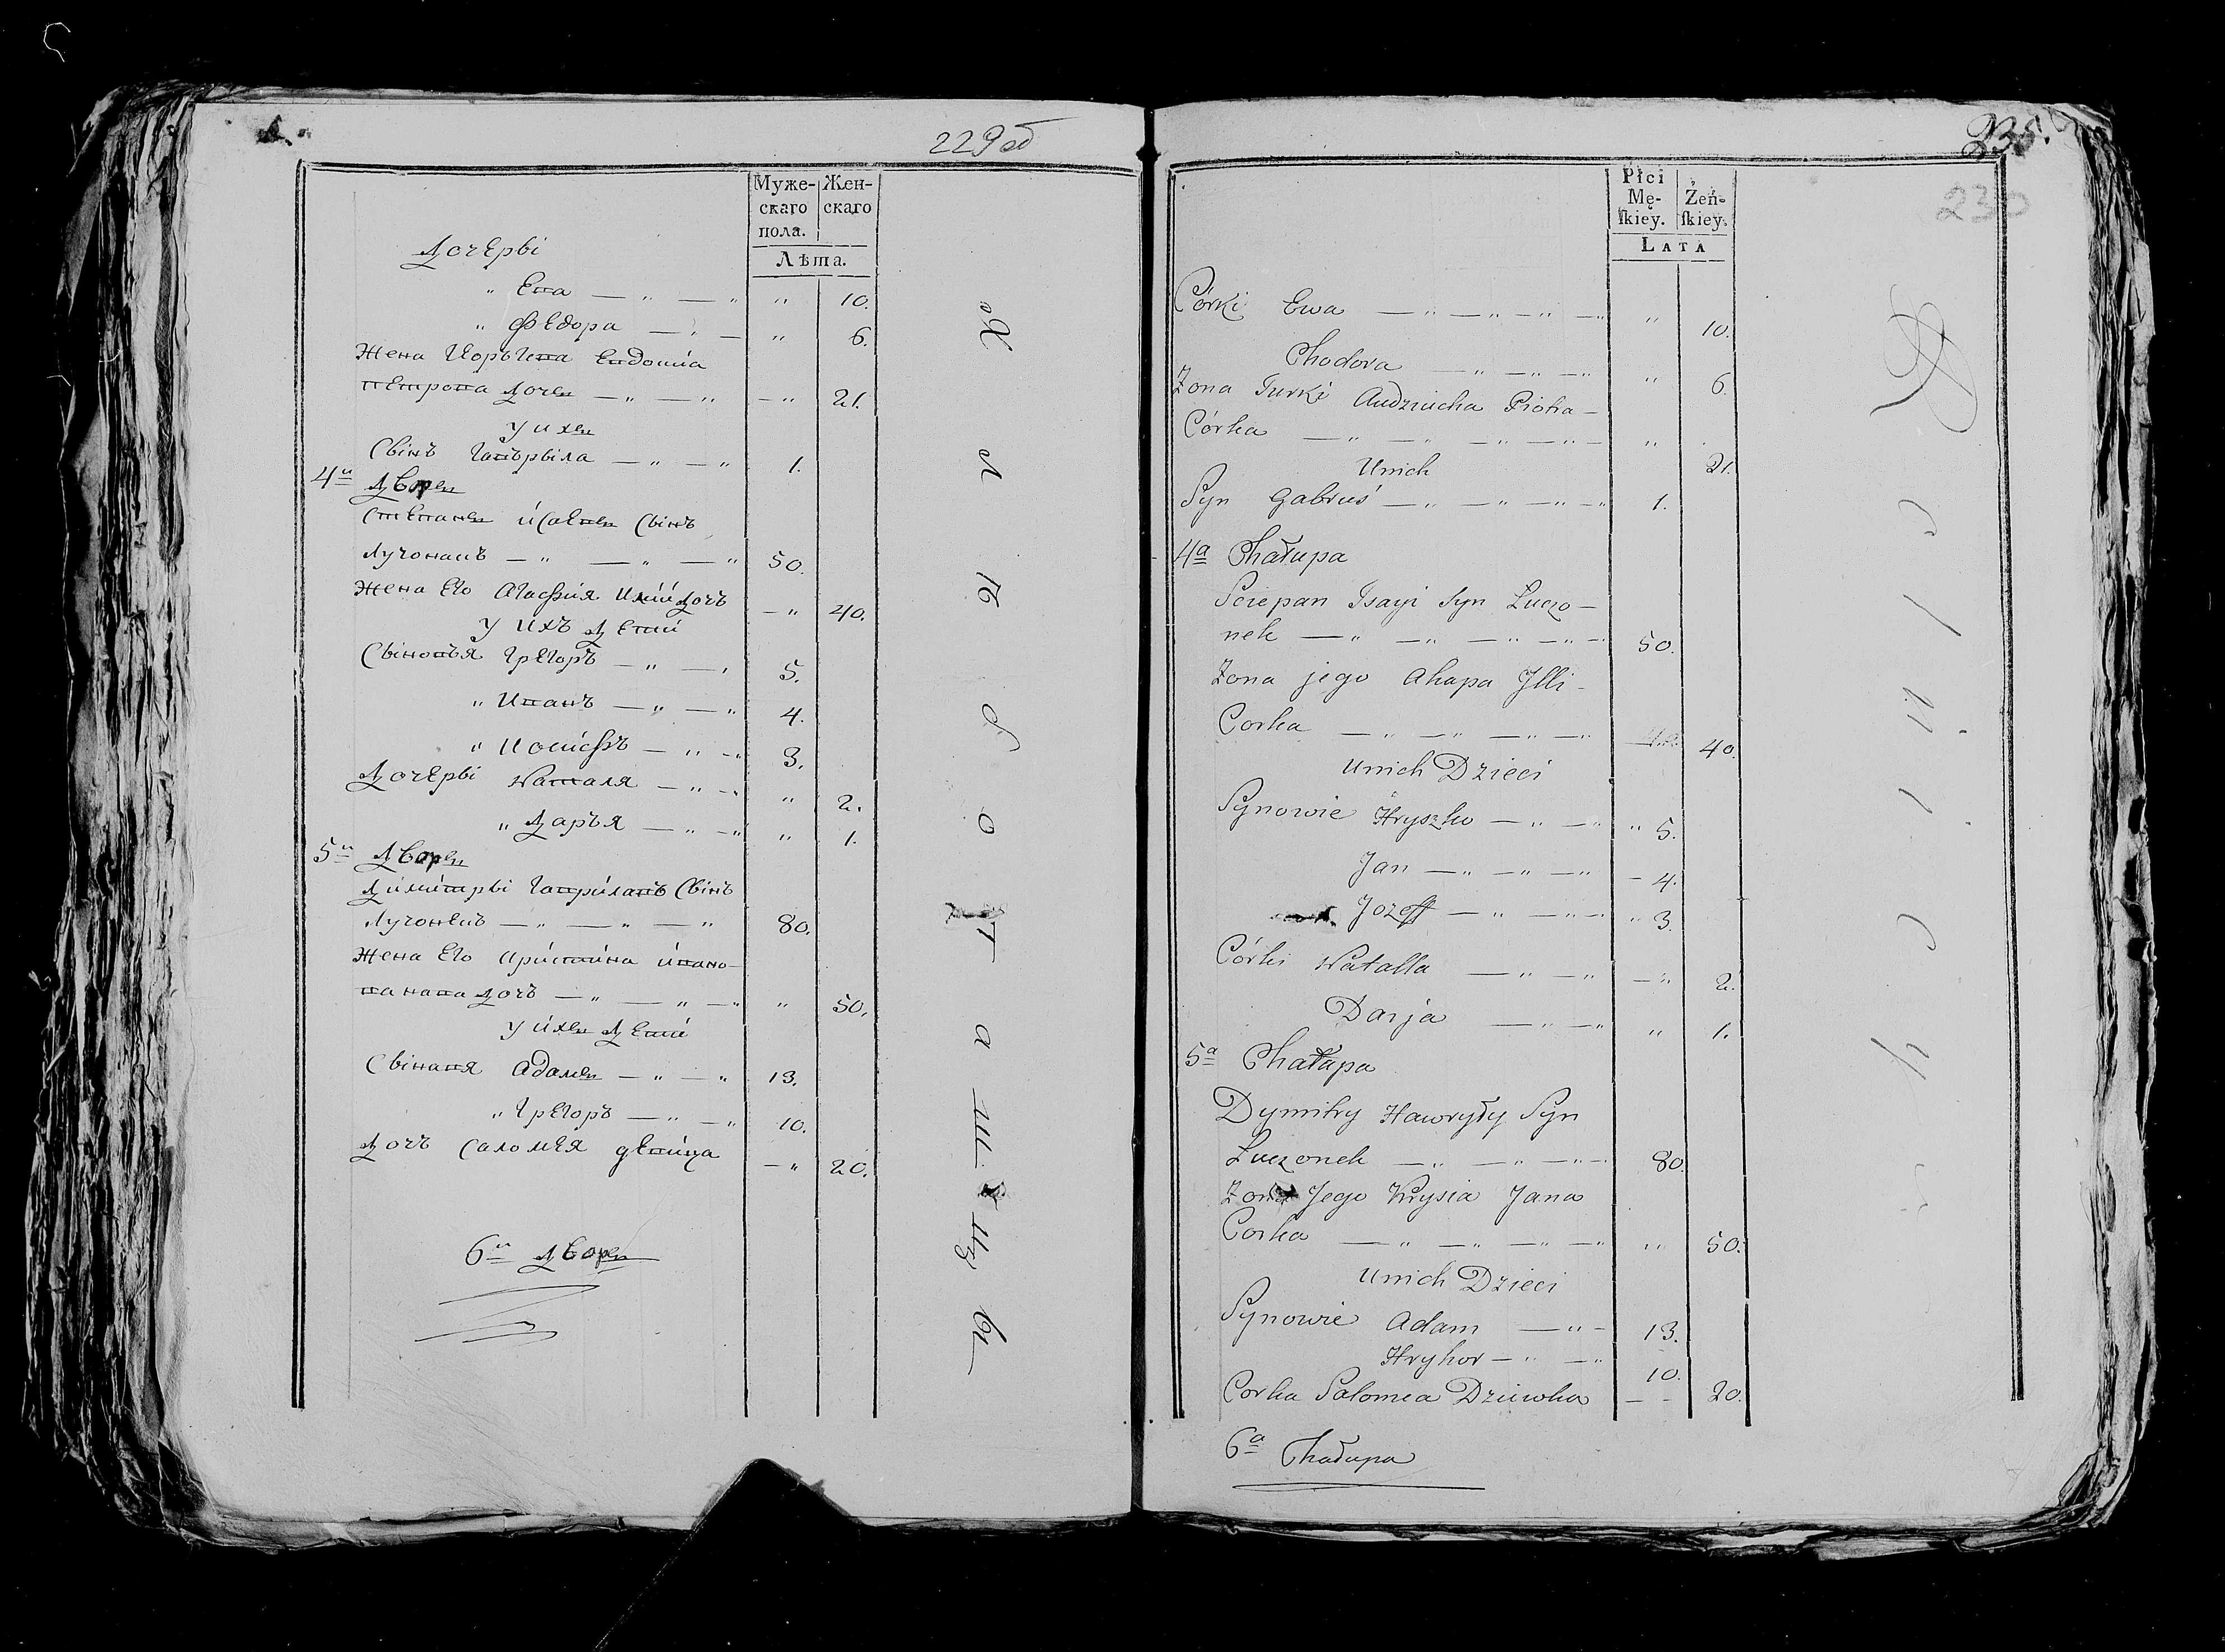 229об
Муже- Жен-
скаго скаго
пола.
Лѣта.
Дочерьі
" Ева — " — " " 10.
" Федора — " — " 6.
Жена Евдокіа
Петрова дочь — " — " — " 21.
У ихъ
Сынъ Гавърыла — " — " 1.
4й Дворъ
Степанъ Исаевъ Сынъ
Лучонакъ — " — " — " 50.
Жена Его Агафия Илїи дочъ — " 40.
У ихъ Дети
Сыновъя Грегоръ — " — " 5.
" Иванъ — " — " 4.
" Иосифъ — " — " 3.
Дочерьі Наталя — " — " " 2.
" Даръя — " — " " 1.
5й Дворъ
Димитрьі Гаврилавъ Сынъ
Лучонекъ — " — " — " 80.
Жена Его Иванo-
вана дочъ — " — " — " " 50.
У ихъ Дети
Сынавя Адамъ — " — " 13.
" Грегоръ — " — " 10.
Дочъ Саломея девица — " 20.
6й Дворъ
Хлѣбопашцы
235.
230
Płci
Mę- Żeń-
skiey. skiey.
LATA
Córki Ewa — " — " — " — " " 10.
Chodora — " — " — " " 6.
Żona Jurki Audziucha Piotra —
Córka — " — " — " — " — " 21.
Unich
Syn Gabruś — " — " — " — " 1.
4a Chałupa
Sciepan Isayi Syn Łuczo —
nek — " — " — " — " — 50.
Żona jego Ahapa Jlli —
Corka — " — " — " — " 40.
Unich Dzieci
Synowie Hryszko — " — " " 5.
Jan — " — " — " – 4.
Jozeff — " — " — " 3.
Córki Natalla — " — " — " 2.
Darja — " — " " 1.
5a Chałupa
Dymitry Hawryły Syn
Łuczonek — " — " — " — 80.
Żona Jego Krysia Jana
Corka — " — " — " — " " 50.
Unich Dzieci
Synowie Adam — " — 13.
Hryhor — " — " 10.
Corka Salomea Dziewka — — 20.
6a Chałupa